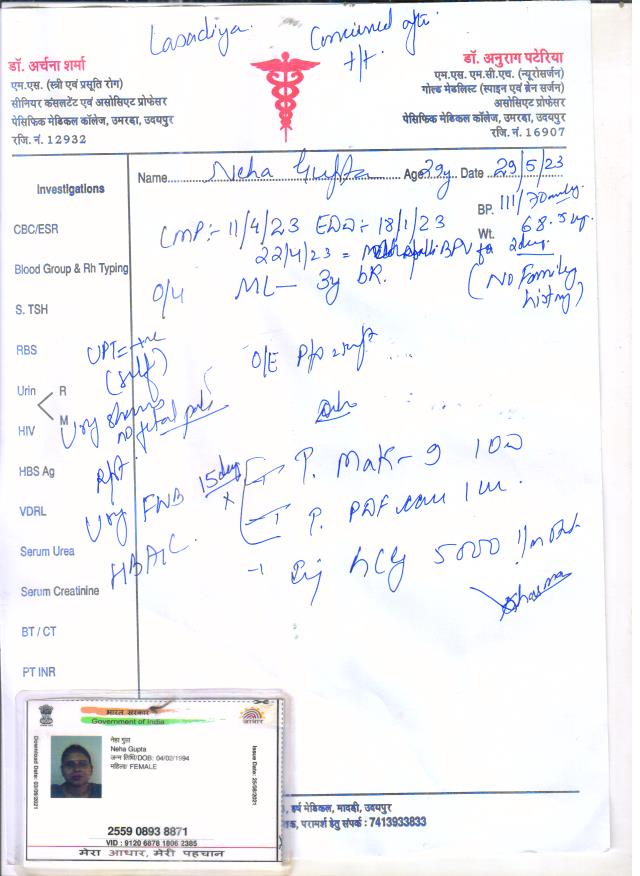 Lasadiya.
Concieved after
t/t.
डॉ. अर्चना शर्मा
एम.एस. (स्त्री एवं प्रसूति रोग)
सीनियर कंसलटेंट एवं असोसिएट प्रोफेसर
पेसिफिक मेडिकल कॉलेज, उमरदा, उदयपुर
रजि. नं. 12932
डॉ. अनुराग पटेरिया
एम.एस. एम.सी.एच. (न्यूरोसर्जन)
गोल्ड मेडलिस्ट (स्पाइन एवं ब्रेन सर्जन)
असोसिएट प्रोफेसर
पेसिफिक मेडिकल कॉलेज, उमरदा, उदयपुर
रजि. नं. 16907
Name Neha Gupta Age 29y Date 29/5/23
BP. 111/70
Wt. 68.5 kg.
LMP:- 11/4/23 EDD:- 18/1/23
22/4/23 = BPV for 2 days.
O/4 ML- 3y
(No Family
history)
Investigations
CBC/ESR
Blood Group & Rh Typing
S. TSH
RBS
Urin R
M
HIV
HBS Ag
VDRL
Serum Urea
Serum Creatinine
BT / CT
PT INR
UPT = +ve
(self)
no fetal pole
FWB
HBA1C.
O/E P/A soft
15 days
x
T. Mak-9 1 OD
T.
Inj hCG 5000
Sharma
भारत सरकार
Government of India
आधार
Download Date: 03/06/2021
नेहा गुप्ता
Neha Gupta
जन्म तिथि/DOB: 04/02/1994
महिला/ FEMALE
Issue Date: 25/05/2021
2559 0893 8871
VID : 9120 6878 1806 2385
मेरा आधार, मेरी पहचान
हर्ष मेडिकल, मादडी, उदयपुर
परामर्श हेतु संपर्क : 7413933833